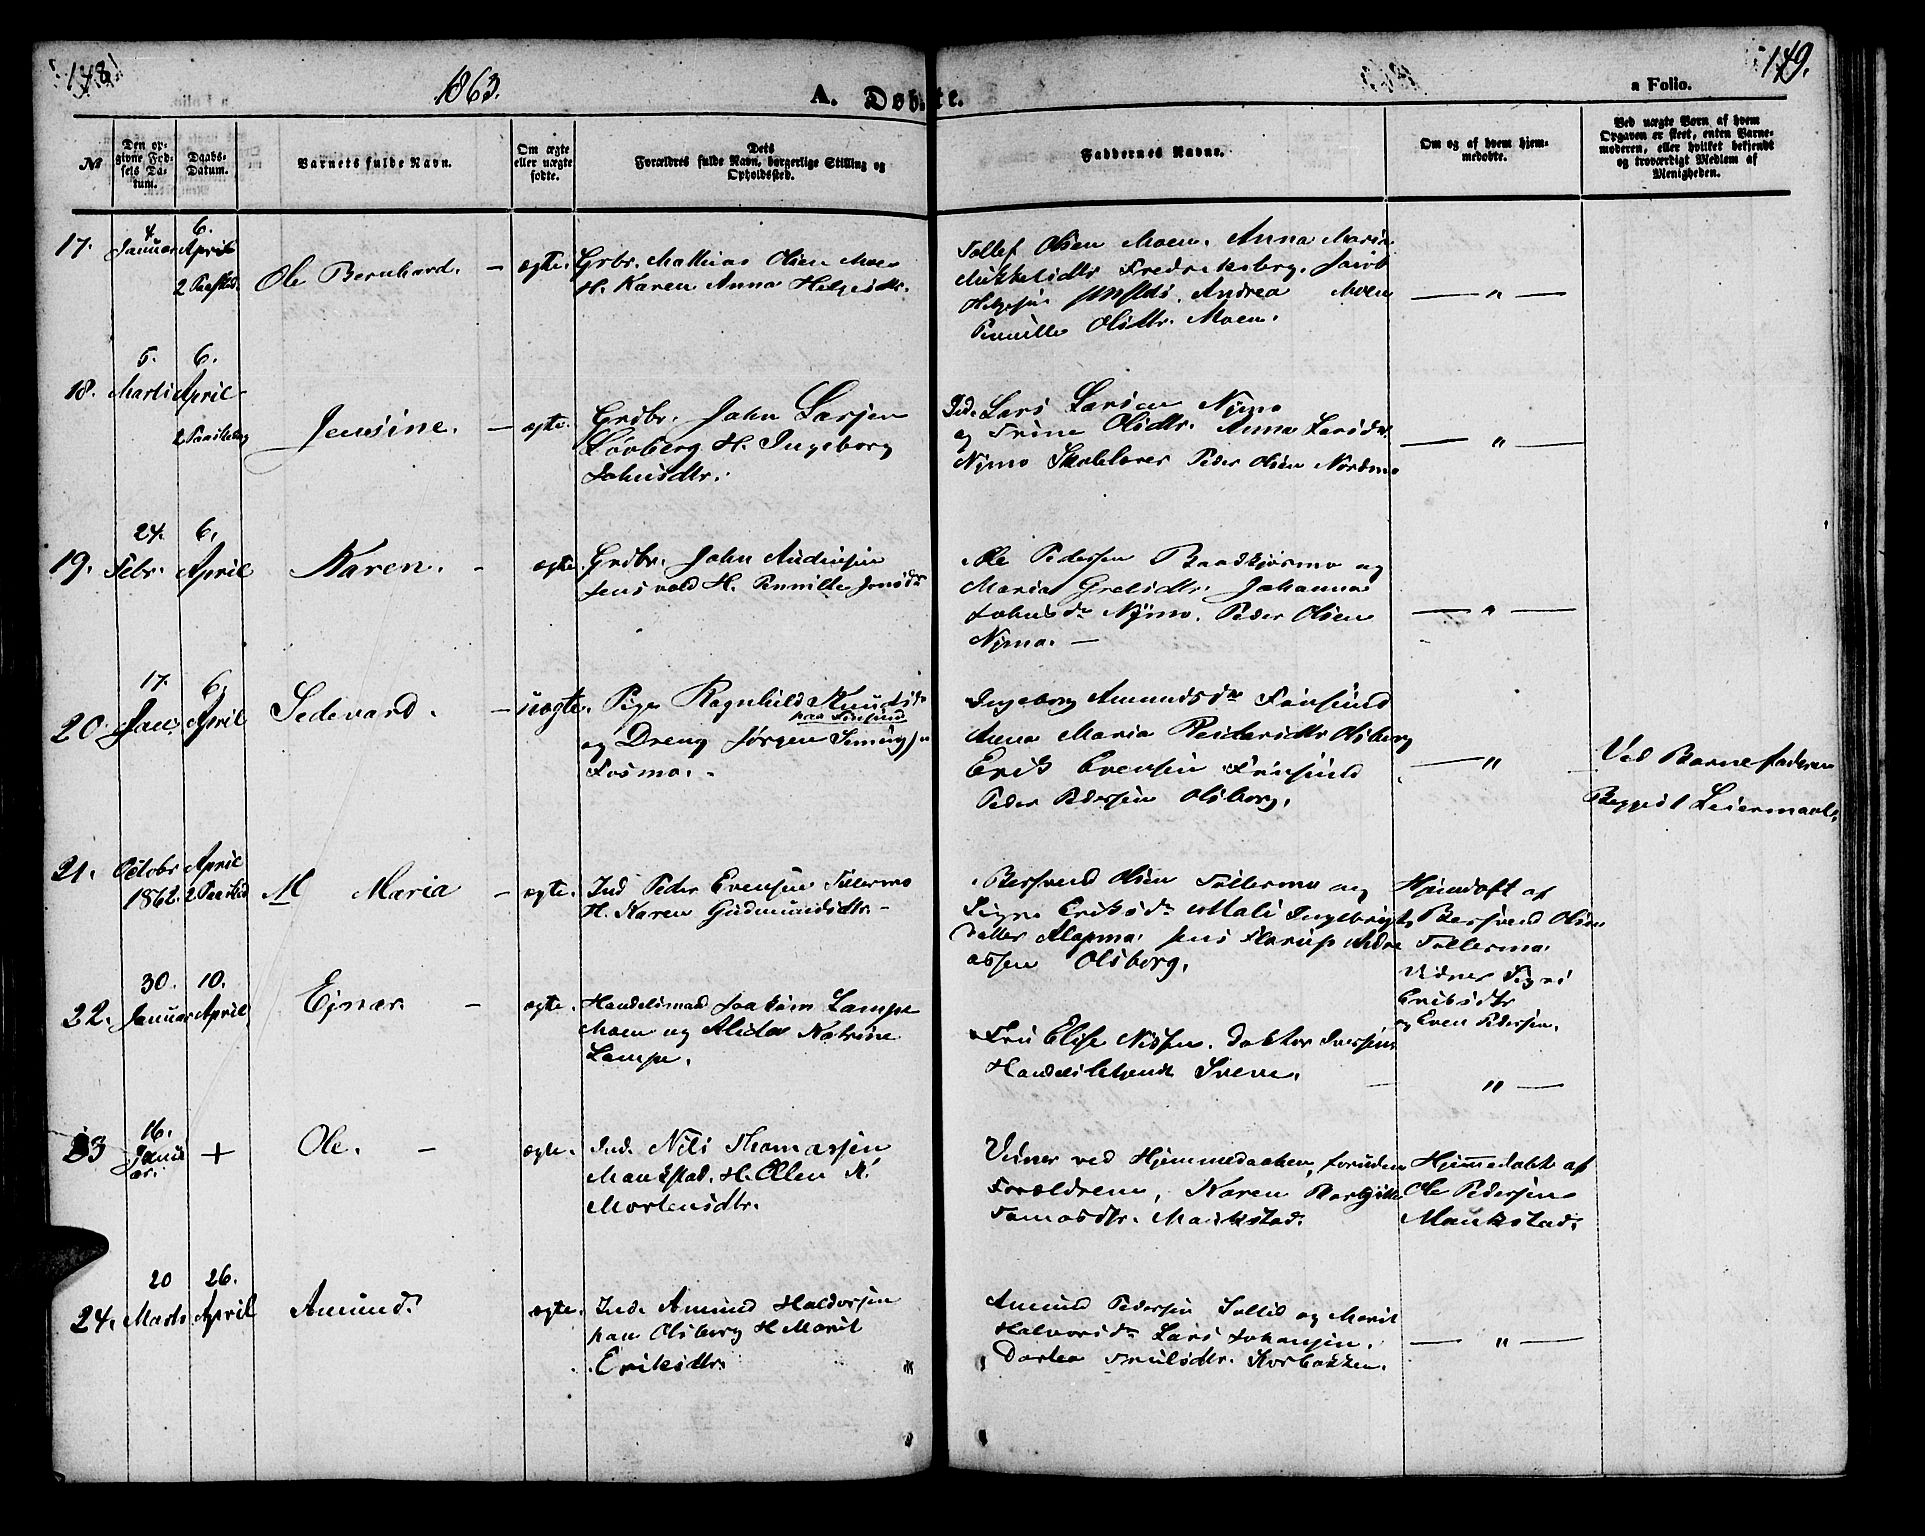 148
1863.
A. Døbte.
149.
a Folio.
No
Den opgivne Fødsels Datum.
Daabs-Datum.
Barnets fulde Navn.
Om ægte eller uægte fødte.
Dets Forældres fulde Navn, borgerlige Stilling og Opholdssted.
Faddernes Navne.
Om og af hvem hjemmedøbte.
Ved uægte Børn af hvem Opgaven er skeet, enten Barnemoderen, eller hvilket bekjendt og troværdigt Medlem af Menigheden.
17.
4.
Januar
6.
April
2 Paaskd.
Ole Bernhard. -
ægte.
Grbr. Mathias Olsen Moen
H. Karen Anna Helgesdtr.
Tollef Olsen Moen. Anna Maria
Mikkelsdtr Fredriksberg. Jacob
Andrea Moen
Pernille Olsdtr. Moen.
— " —
18.
5.
Marts
6.
April
2 Paaskedag
Jensine. -
ægte.
Grdbr. John Larsen
Løvberg H. Ingeborg
Johnsdtr.
Ind. Lars Larsen Nymo
og Trine Olsdtr. Anna Larsdr.
Nymo Skolelærer Peder Olsen Nordmo
— " —
19.
24.
Febr.
6.
April
Karen. -
ægte.
Grdbr. John Andersen
Jensvold H. Pernille Jonsdr
Ole Pedersen Baadkjøsmo og
Maria Gretsdtr. Johanna
Johnsdr Nymo. Peder Olsen
Nymo. —
— " —
20.
17.
Jan.
6.
April
Sedevard. -
uægte.
Pige Ragnhild Knudsdr
paa Finsund
og Dreng Jørgen Simingsen
Fosmo. -
Ingeborg Amundsdr Finsund
Anna Maria Pedersdtr Olsborg
Erik Evensen Finsund
Peder Pedersen Olsborg.
— " —
Ved Barnefaderen
Begges 1 Leiermaal.
21.
Octobr
1862.
April
2 Paaskd
M Maria -
ægte.
Ind Peder Evensen Tollermo
H. Karen Gudmundsdtr. -
Bersvend Olsen Tollermo og
Signe Eriksdr Mali Ingebrigts
datter Alapmo. Jens Florup Andre
assen Olsborg.
Hjemdøbt af
Bersvend Olsen
Tollermo.
Vidner Sigri
Eriksdtr
og Even Pedersen.
22.
30.
Januar
10.
April
Ejnar. -
ægte.
Handelsmand Joakim Lampe
Moen og Alida Katrine
Lampe.
Fru Elise Nilsen. Doktor Iversen.
Handelsbetjent Svern.
" —
23
16.
Janu
ar.
+
Ole. -
ægte.
Ind. Nils Thomassen
Maukstad. H. Ellen K.
Mortensdtr.
Vidner ved Hjemmedaaben, foruden
Forældrene, Karen Borgitte
Tomasdtr. Maukstad.
Hjemmedøbt af
Ole Pedersen
Maukstad.
24.
20
Marts
26.
April
Amund.
ægte.
Ind. Amund Haldorsen
paa Olsborg H Marit
Eriksdtr.
Amund Pedersen Soltid og Marit
Halvorsdr Lars Johansen.
Dortea Troelsdtr. Storbakken.
— " —